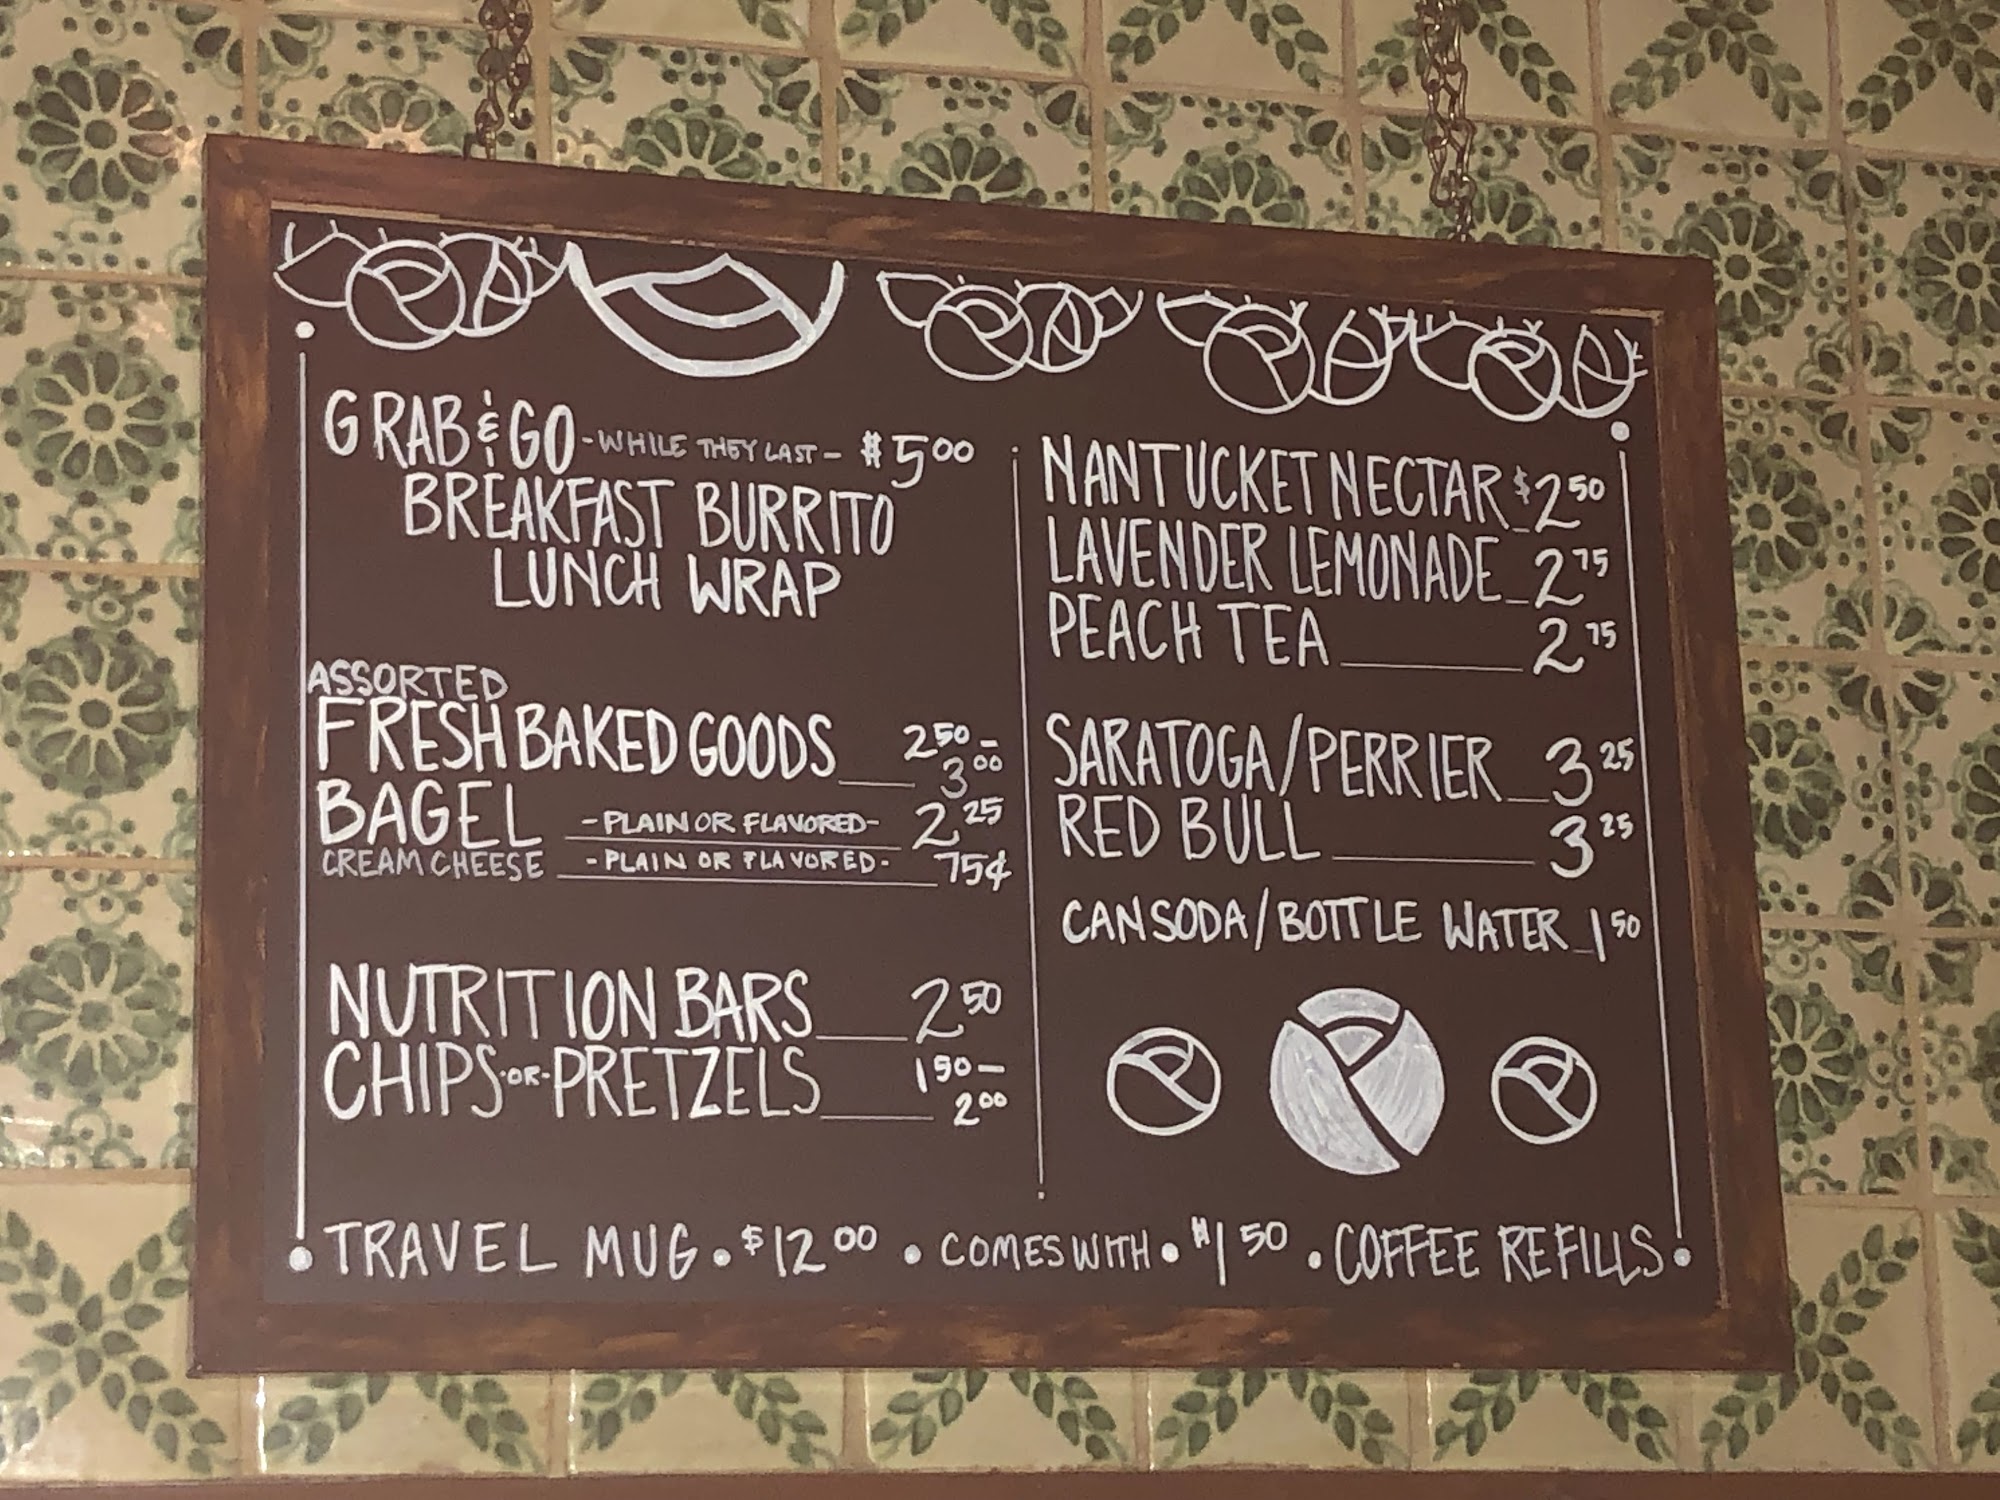 GRAB & GO - WHILE THEY LAST - $5.00
BREAKFAST BURRITO
LUNCH WRAP
ASSORTED
FRESH BAKED GOODS 2.50 - 3.00
BAGEL - PLAIN OR FLAVORED - 2.25
CREAM CHEESE - PLAIN OR FLAVORED - 75¢
NUTRITION BARS 2.50
CHIPS - OR - PRETZELS 1.50 - 2.00
NANTUCKET NECTAR $2.50
LAVENDER LEMONADE 2.75
PEACH TEA 2.75
SARATOGA/PERRIER 3.25
RED BULL 3.25
CAN SODA/BOTTLE WATER 1.50
TRAVEL MUG • $12.00 • COMES WITH • $1.50 • COFFEE REFILLS •